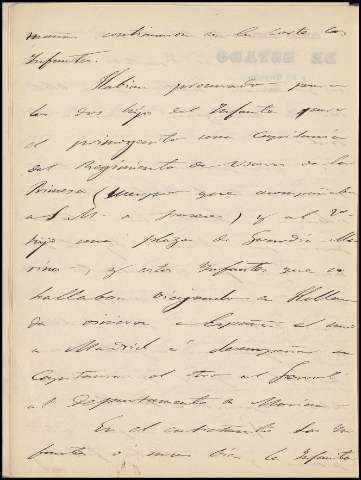 continuaran en la Corte los
Infantes.
Habian procurado para
los dos hijos del Infante para
el primogenito una Capitania
del Regimiento de Usares de la
Princesa (Cuerpo que acompañaba
a S. M. a paseo) y al 2º
hijo una plaza de Guardia Ma
rina, y estos Infantes que se
hallaban viajando en Holan
da vinieron a España el uno
a Madrid á desempeñar su
Capitania el otro al Ferrol
al Departamento de Marina
En el entretanto los In
fantes ó mas bien la Infanta